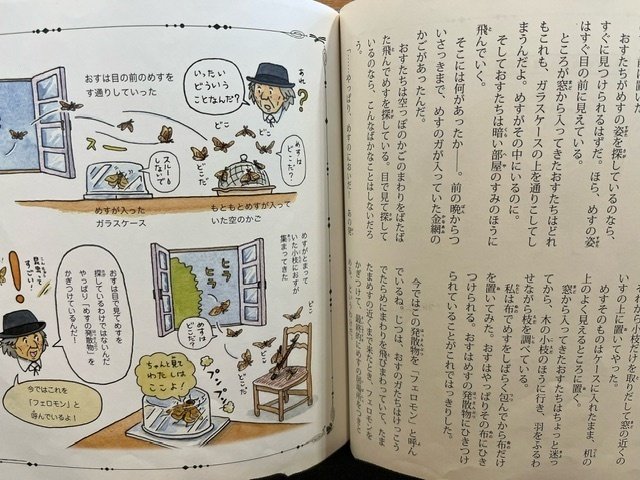 おすたちがめすの姿を探しているのなら、
すぐに見つけられるはずだ。ほら、めすの姿
はすぐ目の前に見えている。
ところが窓から入ってきたおすたちはどれ
もこれも、ガラスケースの上を通りこしてし
まうんだよ。めすがその中にいるのに。
そしておすたちは暗い部屋のすみのほうに
飛んでいく。
そこには何があったか――。前の晩からつ
いさっきまで、めすのガが入っていた金網の
かごがあったんだ。
おすたちは空っぽのかごのまわりをばたば
た飛んでめすを探している。目で見て探して
いるのなら、こんなばかなことはしないだろ
う。
いすの上に置いてやった。
めすそのものはケースに入れたまま、机の
上のよく見えるところに置く。
窓から入ってきたおすたちはちょっと迷っ
てから、木の小枝のほうに行き、羽をふるわ
せながら枝を調べている。
私は布でめすをしばらく包んでから布だけ
を置いてみた。おすはやっぱりその布にひき
つけられる。おすはめすの発散物にひきつけ
られていることがこれではっきりした。
今ではこの発散物を「フェロモン」と呼ん
でいるね。じつは、おすのガたちはけっこう
でたらめにまわりを飛びまわっていて、たま
たまめすの近くまで来たとき、フェロモンを
おすは目の前のめすを
す通りしていった
いったい
どういう
ことなんだ?
あれ
?
どこ
どこ
どこだ
めすは
どこだ?
スルー
しないで
めすが入った
ガラスケース
もともとめすが入って
いた空のかご
めすがとまって
いた小枝におすが
集まってきた
昆虫って
すごい!
!
おすは目で見てめすを
探しているわけではないんだ
やっぱり「めすの発散物」を
かぎつけているんだ!
今ではこれを
「フェロモン」と
呼んでいるよ!
ヒラ
ヒラ
どこ
めすは
どこだ?
どこ
ちゃんと見て
わたしは
ここよ!
プンプン